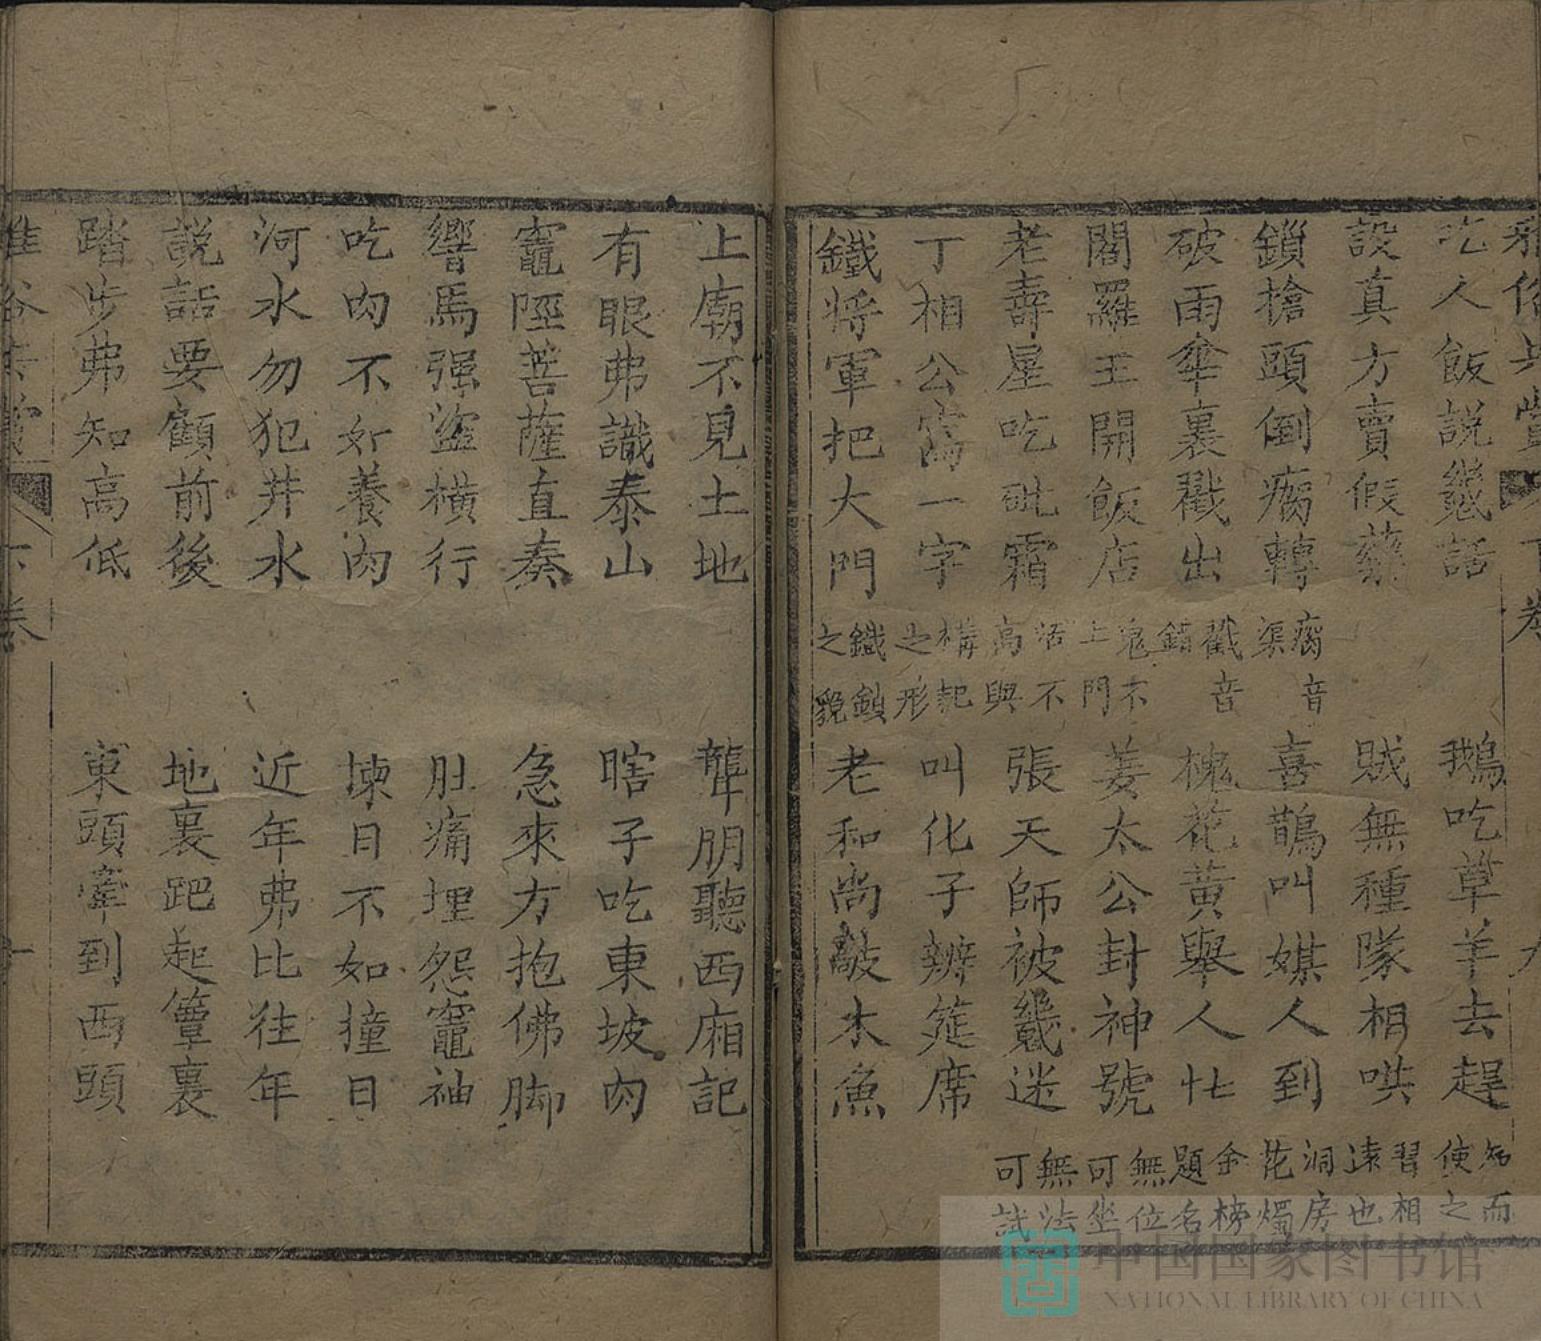 雅俗共賞 下卷 九
吃人飯說鬼話 鵝吃草羊去趕 知而使之
設真方賣假藥 賊無種隊相哄 習相遠也
鎖搶頭倒瘸轉 瘸音渠 喜鵲叫媒人到 洞房花燭
破雨傘裏戳出 戳音錯 槐花黃舉人忙 金榜題名
閻羅王開飯店 鬼不上門 姜太公封神號 無位可坐
老壽星吃砒霜 活不高興 張天師被鬼迷 無法可試
丁相公寫一字 構記之形 叫化子辨筵席
鐵將軍把大門 鐵鎖之貌 老和尚敲木魚
上廟不見土地 聾朋聽西廂記
有眼弗識泰山 瞎子吃東坡肉
竈陘菩薩直奏 急來方抱佛脚
響馬强盜橫行 肚痛埋怨竈袖
吃肉不如養肉 揀日不如撞日
河水勿犯井水 近年弗比往年
說話要顧前後 地裏跁起簟裏
踏步弗知高低 東頭牽到西頭
雅俗共賞 下卷 十
中国国家图书馆
NATIONAL LIBRARY OF CHINA